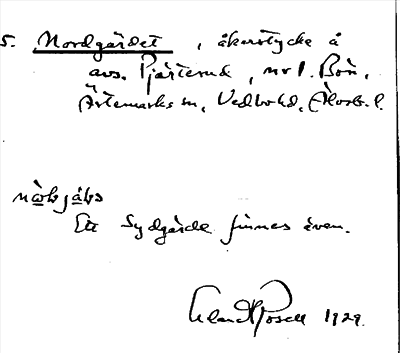 5. Nordgärdet, åkerstycke å
avs. Pjärterud, nr 1. Bön,
Ärtemarks sn, Vedbohd, Älvsb. l.
Ett Sydgärde finnes även.
1929.